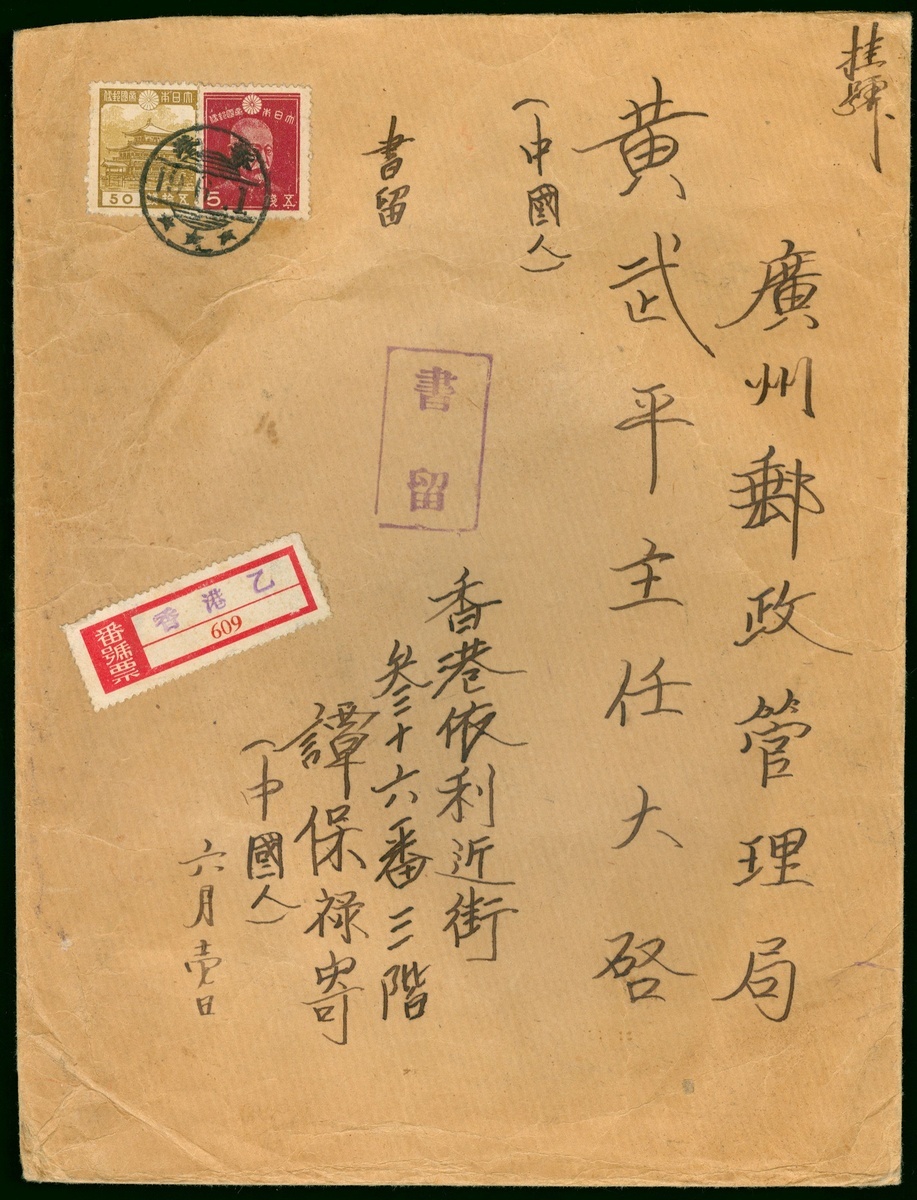 挂號
廣州郵政管理局
黃武平主任大啓
(中國人)
書留
書留
香港依利近街
三十六番三階
譚保祿寄
(中國人)
六月壹日
大日本帝國郵便
5
五錢
大日本帝國郵便
50
香港
番號票
香港乙
609